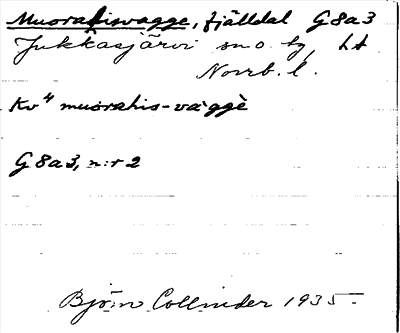 Muorahisvagge, fjälldal G8a3
Jukkasjärvi sn o. tg, Lt
Norrb. l.
Kv⁴ muorahis-vàggè
G8a3, n:r 2
Björn Collinder 1935